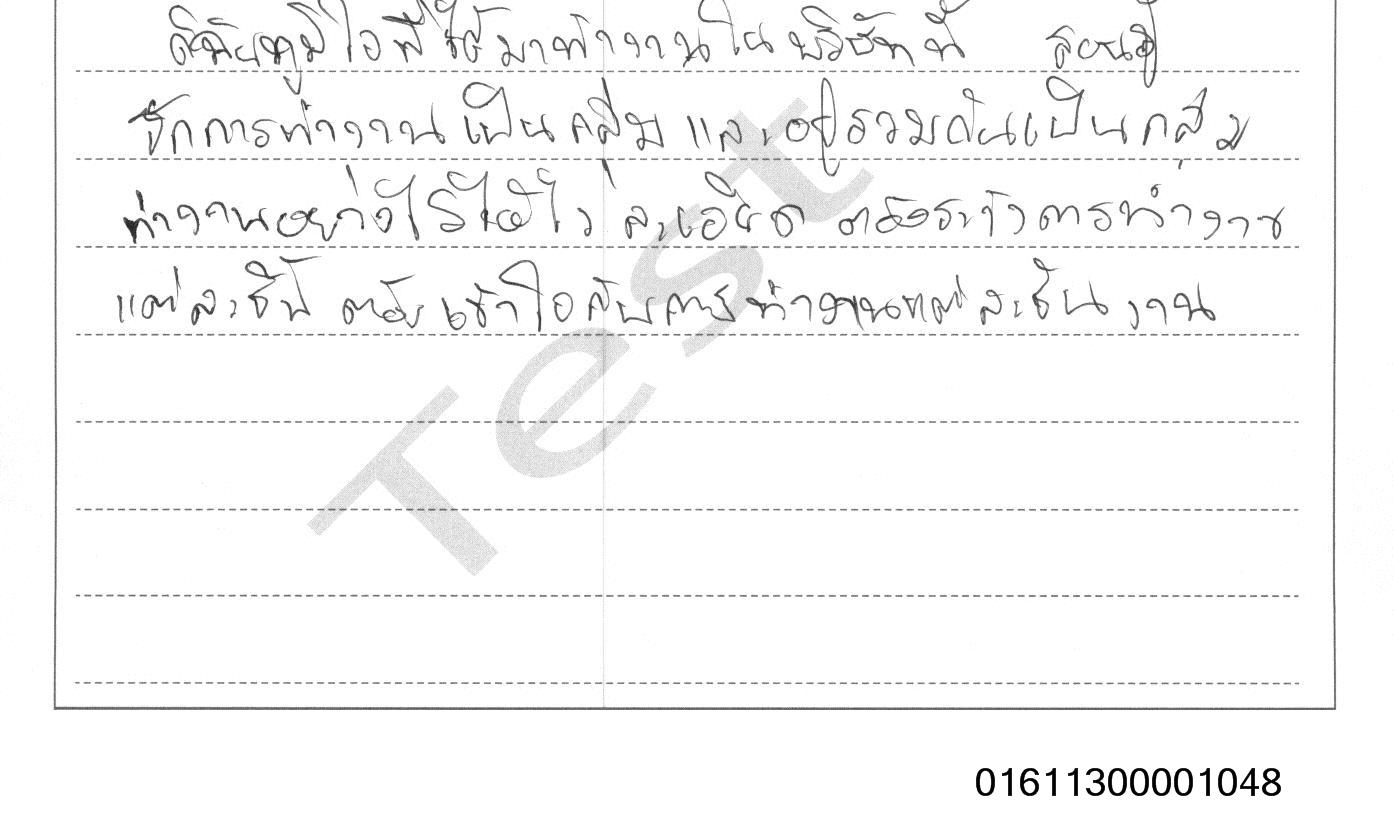 ดิฉันภูมิใจที่ได้มาทำงานในบริษัทนี้ สอนให้
รู้จักการทำงานเป็นกลุ่ม และอยู่รวมกันเป็นกลุ่ม
ทำงานอย่างไรให้ไว ละเอียด ต้องระวังการทำงาน
แต่ละชิ้น ต้องเข้าใจกับการทำงานแต่ละชิ้นงาน
Test
01611300001048